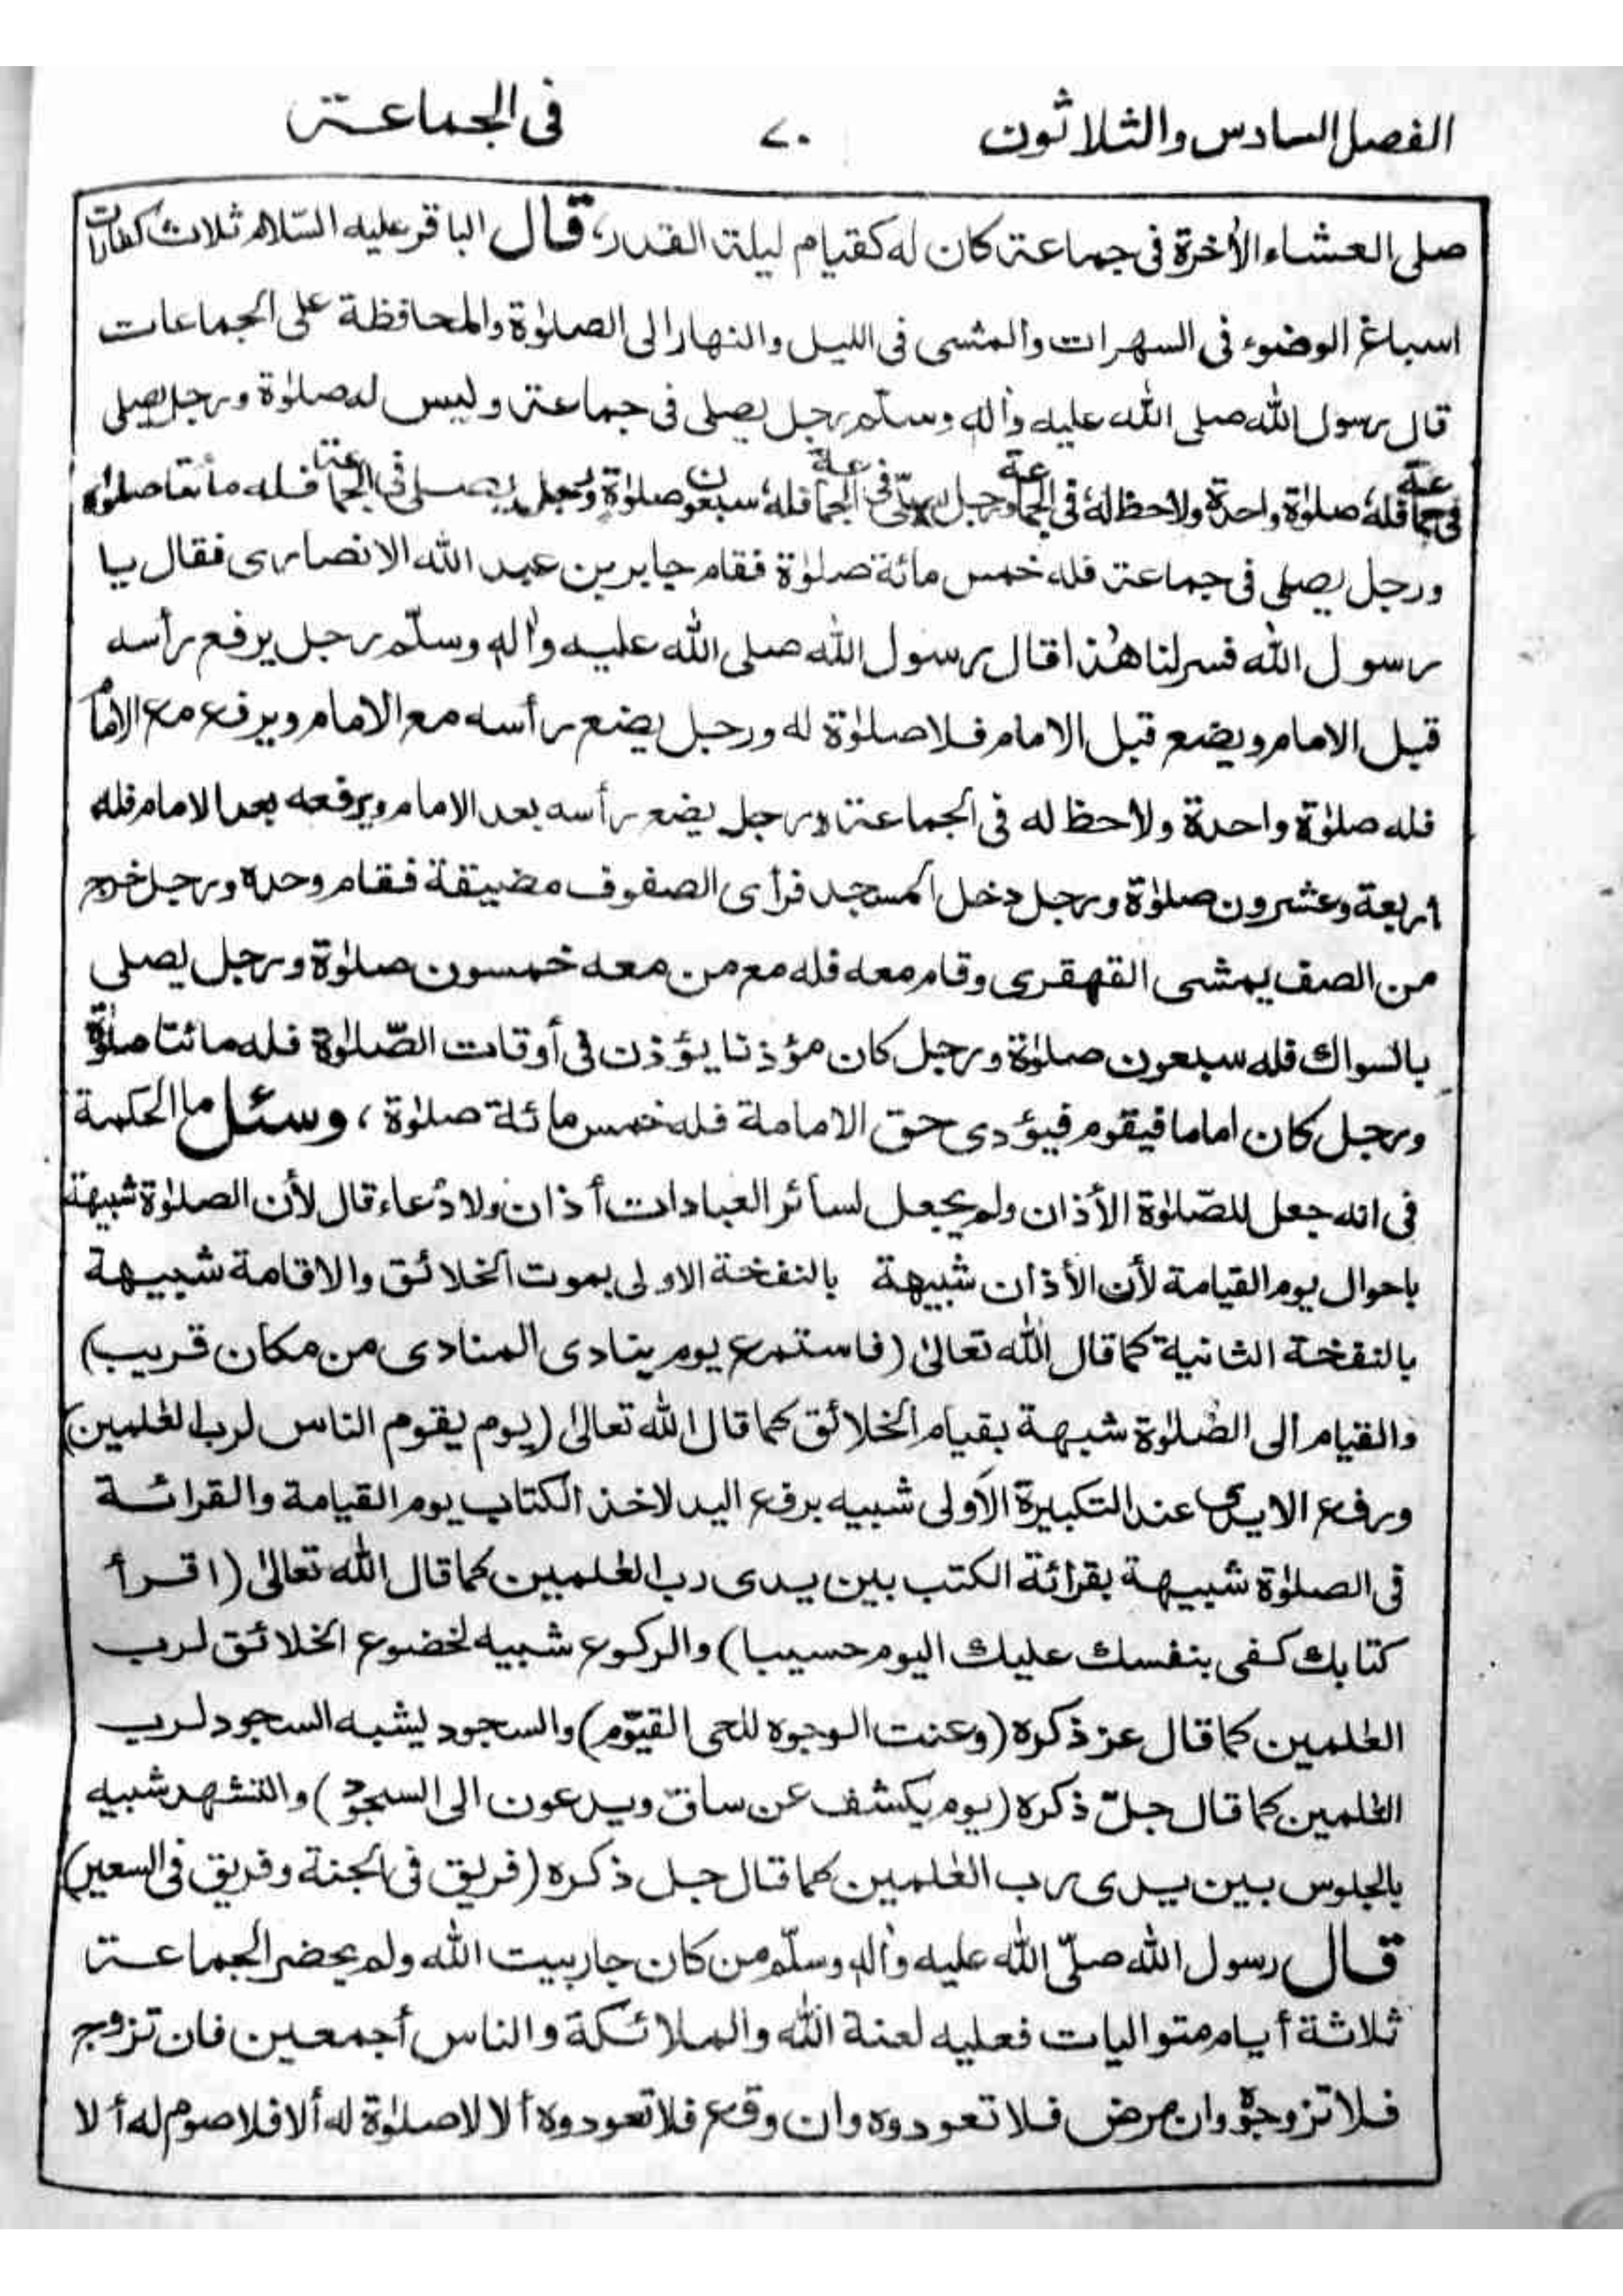 الفصل السادس والثلاثون ٧٠ فى الجماعة
صلى العشاء الأخرة فى جماعة كان له كقيام ليلة القدر، قال الباقر عليه السّلام ثلاث كفارات
اسباغ الوضوء فى السهرات والمشى فى الليل والنهار الى الصلوٰة والمحافظة على الجماعات
قال رسول الله صلى الله عليه وأله وسلّم رجل يصلى فى جماعة وليس له صلوٰة ورجل يصلى
فى جماعة فله صلوٰة واحدة ولاحظ له فى الجماعة ورجل يصلّى فى الجماعة فله سبعون صلوٰة ورجل يصلى فى الجماعة فله مأتا صلوٰة
ورجل يصلى فى جماعة فله خمس مائة صلوٰة فقام جابر بن عبد الله الانصارى فقال يا
رسول الله فسر لنا هٰذا قال رسول الله صلى الله عليه وأله وسلّم رجل يرفع رأسه
قبل الامام ويضع قبل الامام فلا صلوٰة له ورجل يضع رأسه مع الامام ويرفع مع الامام
فله صلوٰة واحدة ولاحظ له فى الجماعة ورجل يضع رأسه بعد الامام ويرفعه بعد الامام فله
اربعة وعشرون صلوٰة ورجل دخل المسجد فرأى الصفوف مضيقة فقام وحده ورجل خرج
من الصف يمشى القهقرى وقام معه فله مع من معه خمسون صلوٰة ورجل يصلى
بالسواك فله سبعون صلوٰة ورجل كان مؤذنا يؤذن فى أوقات الصّلوٰة فله مائتا صلوٰة
ورجل كان اماما فيقوم فيؤدى حق الامامة فله خمس مائة صلوٰة، وسئل ما الحكمة
فى انه جعل للصّلوٰة الأذان ولم يجعل لسائر العبادات أذان ولا دُعاء قال لأن الصلوٰة شبيهة
باحوال يوم القيامة لأن الأذان شبيهة بالنفخة الاولى بموت الخلائق والاقامة شبيهة
بالنفخة الثانية كما قال الله تعالىٰ (فاستمع يوم ينادى المنادى من مكان قريب)
والقيام الى الصّلوٰة شبهة بقيام الخلائق كما قال الله تعالىٰ (يوم يقوم الناس لرب العٰلمين)
ورفع الايدى عند التكبيرة الأولى شبيه برفع اليد لاخذ الكتاب يوم القيامة والقرائة
فى الصلوٰة شبيهة بقرائة الكتب بين يدى رب العٰلمين كما قال الله تعالىٰ (اقرأ
كتابك كفى بنفسك عليك اليوم حسيبا) والركوع شبيه لخضوع الخلائق لرب
العٰلمين كما قال عز ذكره (وعنت الوجوه للحى القيّوم) والسجود ليشبه السجود لرب
العٰلمين كما قال جلّ ذكره (يوم يكشف عن ساق ويدعون الى السجود) والتشهد شبيه
بالجلوس بين يدى رب العٰلمين كما قال جل ذكره (فريق فى الجنة وفريق فى السعير)
قال رسول الله صلّى الله عليه وأله وسلّم من كان جار بيت الله ولم يحضر الجماعة
ثلاثة أيام متواليات فعليه لعنة الله والملائكة والناس أجمعين فان تزوج
فلا تزوجوه وان مرض فلا تعودوه وان وقع فلا تعودوه ألا لا صلوٰة له ألا فلا صوم له ألا